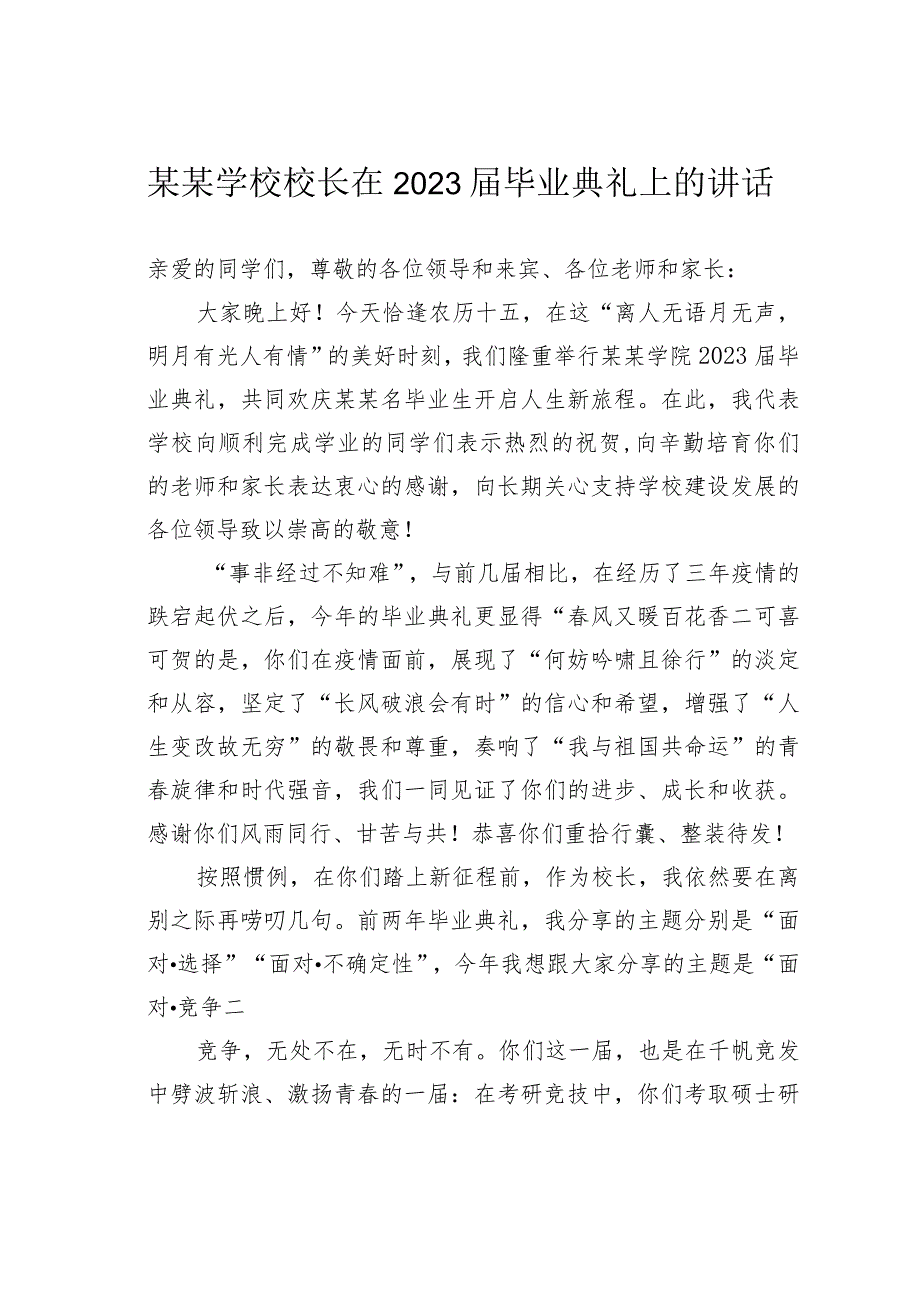 某某学校校长在 2023 届毕业典礼上的讲话
亲爱的同学们，尊敬的各位领导和来宾、各位老师和家长：
大家晚上好！今天恰逢农历十五，在这“离人无语月无声，
明月有光人有情”的美好时刻，我们隆重举行某某学院 2023 届毕
业典礼，共同欢庆某某名毕业生开启人生新旅程。在此，我代表
学校向顺利完成学业的同学们表示热烈的祝贺,向辛勤培育你们
的老师和家长表达衷心的感谢，向长期关心支持学校建设发展的
各位领导致以崇高的敬意！
“事非经过不知难”，与前几届相比，在经历了三年疫情的
跌宕起伏之后，今年的毕业典礼更显得“春风又暖百花香二可喜
可贺的是，你们在疫情面前，展现了“何妨吟啸且徐行”的淡定
和从容，坚定了“长风破浪会有时”的信心和希望，增强了“人
生变改故无穷”的敬畏和尊重，奏响了“我与祖国共命运”的青
春旋律和时代强音，我们一同见证了你们的进步、成长和收获。
感谢你们风雨同行、甘苦与共！恭喜你们重拾行囊、整装待发！
按照惯例，在你们踏上新征程前，作为校长，我依然要在离
别之际再唠叨几句。前两年毕业典礼，我分享的主题分别是“面
对•选择”“面对•不确定性”，今年我想跟大家分享的主题是“面
对•竞争二
竞争，无处不在，无时不有。你们这一届，也是在千帆竞发
中劈波斩浪、激扬青春的一届：在考研竞技中，你们考取硕士研